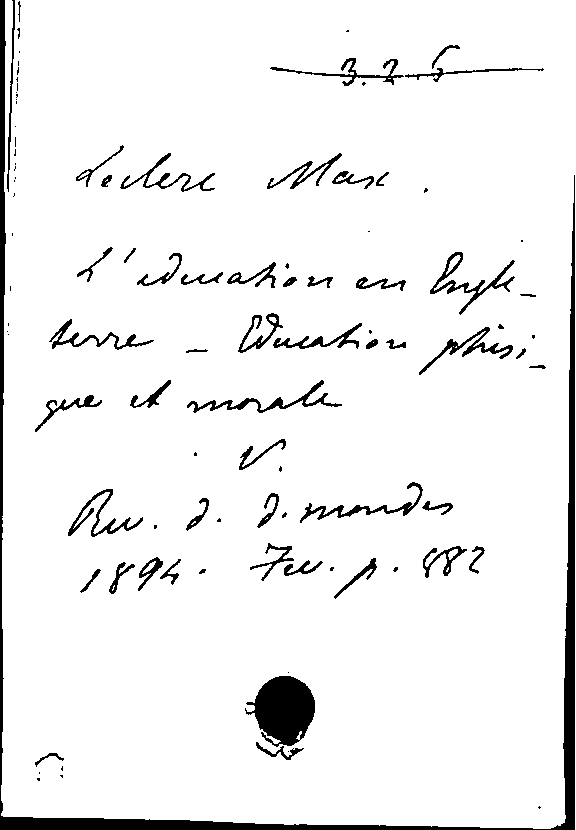 3.2.5
Leclerc Max.
L'education en Engle-
terre - Education phisi-
que et morale
V.
Rev. d. d. mondes
1894. Fev. p. 882